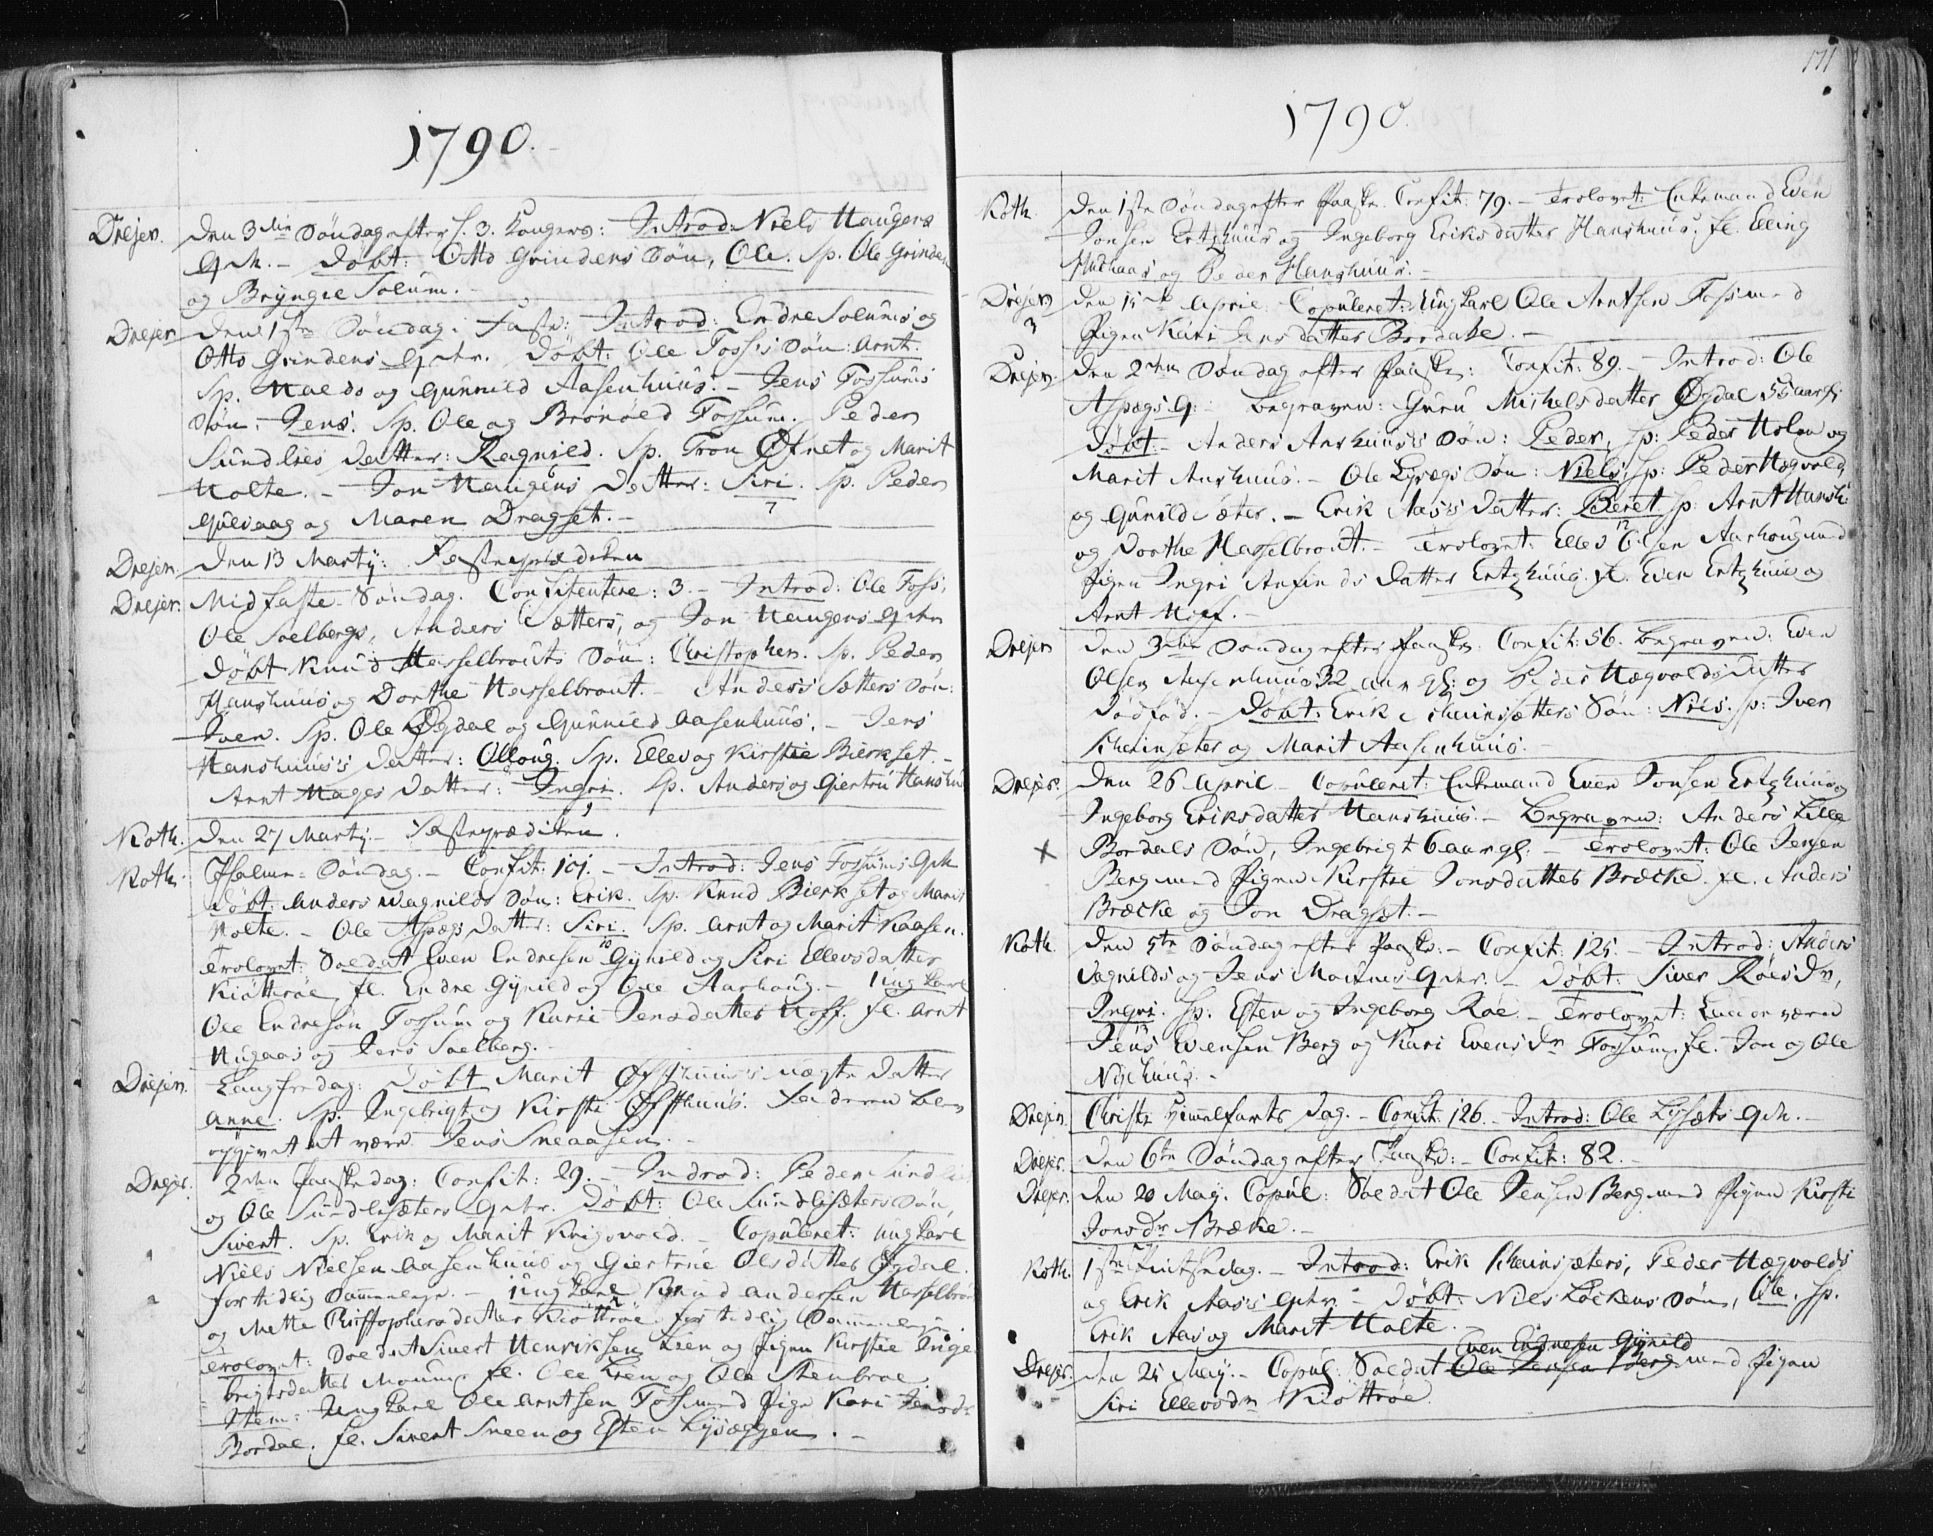 1790.
Drejer. Den 3die Søndag efter H. 3 Konger: Introd: Niels Haugens
Qvh. – Døbt: Otto Grindens Søn, Ole. Sp. Ole Grinden
og Bryngel Solum.
Drejer Den 1ste Søndag i Faste: Introd: Endre Solums og
Otto Grindens Qvhr. Døbt: Ole Foss's Søn: Arnt.
Sp. Haldo og Gunnild Aasenhuus. – Jens Fossums
Søn: Jens. Sp. Ole og Brønøld Fossum. Peder
Sundlies Datter: Ragnild. Sp. Tron Øfnet og Marit
Holte. – Jon Haugens Datter: Siri. Sp. Peder
Gulvaag og Maren Dragset. –
7
Drejer. Den 13 Martij: Fasteprædiken
Drejer. Midfaste Søndag. Confitentere: 3. – Introd: Ole Foss,
Ole Solbergs, Anders Sætters, og Jon Haugens Qvhr
Døbt Knud Hasselbrouts Søn: Christopher. Sp. Peder
Hanshuus og Dorthe Hasselbrout. – Anders Sætters Søn:
Iver. Sp. Ole Øgdal og Gunnild Aasenhuus. – Jens
Hanshuus's Datter: Olloug. Sp. Ellev og Kirstie Bierkset. –
Arnt Mages Datter: Ingri. Sp. Anders og Giertru Hanshuus
9
Roth. Den 27 Martij – Fasteprædiken.
Roth. Palme-Søndag. – Confit: 101. – Introd: Jens Fossums Qvh
Døbt: Anders Vagnilds Søn: Erik. Sp. Knud Bierkset og Marit
Holte. – Ole Aspægs Datter: Siri. Sp. Arnt og Marit Kaasen.
10
Trolovet: Soldat Even Endresen Gynild og Siri Ellevsdatter
Kiøttrøe. fl. Endre Gynild og Ole Aarhoug. – Ung Karl
Ole Endresøn Fossum og Karie Jensdatter Hoff. fl. Arnt
Hugaas og Jens Solberg. –
Drejer. Langfredag: Døbt Marit Øfsthuus's uægte Datter
Anne. Sp. Ingebrigt og Kirsti Øfsthuus. Faderen blev
opgivet at være Jens Sneaasen. –
Drejer. 2den Paaskedag: Confit: 29. – Indrod: Peder Sundlies
og Ole Sundlisæters Qvhr. Døbt: Ole Sundlisæters Søn,
Sivert. Sp. Erik og Marit Krigsvold. – Copuleret: ung Karl
Niels Nielsen Aasenhuus og Giertrue Olsdatter Øgdal.
for tidlig Sammenleye. – Ung Karl Knud Andersen Hasselbrout
og Mette Christophersdatter Kiøttrøe for tidlig Sammenleye.
Trolovet: Soldat Sivert Henriksen Lien og Pigen Kirstie Inge-
brigtsdatter Moum. fl. Ole Lien og Ole Stenbroe.
Item: Ung Karl Ole Arntsen Foss med Pige Kari Jensdr
Bordal. fl. Sivert Sneen og Esten Lysæggen. –
171
1790.
Roth. Den 1ste Søndag efter Paaske. Confit: 79. – Trolovet: Enkemand Even
Jonsen Ertzhuus og Ingeborg Eriksdatter Hanshuus. fl. Elling
og Peder Hanshuus. –
Drejer Den 15de April. Copuleret: Ung Karl Ole Arntsen Foss med
3
Pigen Kari Jensdatter Bordale. –
Drejer. Den 2den Søndag efter Paaske: Confit: 89. – Introd: Ole
Aspægs Q: – begraven: Guru Mickelsdatter Øgdal 55 aar
Døbt – Anders Aashuus's Søn: Peder, Sp: Peder Holen og
Marit Aashuus. – Ole Lysægs Søn: Niels, Sp: Peder Hægvold
og Gunild Sæter. – Erik Aas's Datter: Beret Sp: Arnt Hansh:
12
og Dorthe Hasselbrout. – Trolovet: Ellev Olsen Aarhoug med
Pigen Ingri Anfindsdatter Ertzhuus. fl. Even Ertzhuus og
Arnt Hoff. –
Drejer Den 3die Søndag efter Paaske: Confit: 56. begraven: Even
Olsen Aasenhuus 32 aar gl: og Peder Hægvolds Datter
Dødfød. – Døbt: Erik Scheinsætters Søn: Niels. Sp: Iver
Scheinsæter og Marit Aasenhuus. –
Drejer. Den 26 April – Copuleret: Enkemand Even Jonsen Ertzhuus og
Ingeborg Eriksdatter Hanshuus. – Begraven: Anders Lille
X Bordals Søn, Ingebrigt 6 aar gl. – Trolovet: Ole Jensen
Berg med Pigen Kirstie Jonsdatter Bræcke. fl. Anders
Bræcke og Jon Dragset. –
Roth. Den 5te Søndag efter Paaske. – Confit: 125. – Introd: Anders
Vagnilds og Jens Moums Qvhr. – Døbt: Siver Røes Dr,
Ingri. Sp: Esten og Ingeborg Røe. – Trolovet:
Jens Evensen Berg og Kari Evensdr Fossum. fl. Jon og Ole
Nyehuus. –
Drejer. Christi Himmelfarts Dag. – Confit: 126. – Introd: Ole Lysæts Qvh. –
Drejer. Den 6te Søndag efter Paaske: – Confit: 82. –
Drejer. Den 20 Maij. Copul: Soldat Ole Jensen Berg med Pigen Kirsti
Jonsdr Bræcke. –
Roth. 1ste Pintsedag. – Introd: Erik Scheinsæters, Peder Hægvolds
og Erik Aas's Qvhr – Døbt: Niels Løckens Søn, Ole. Sp.
Erik Aas og Marit Holte.
Even Endresen Gynild
Drejer. Den 25 Maij. – Copul: Soldat Ole Jensen Berg med Pigen
Siri Ellevsdr Kiøttrøe.